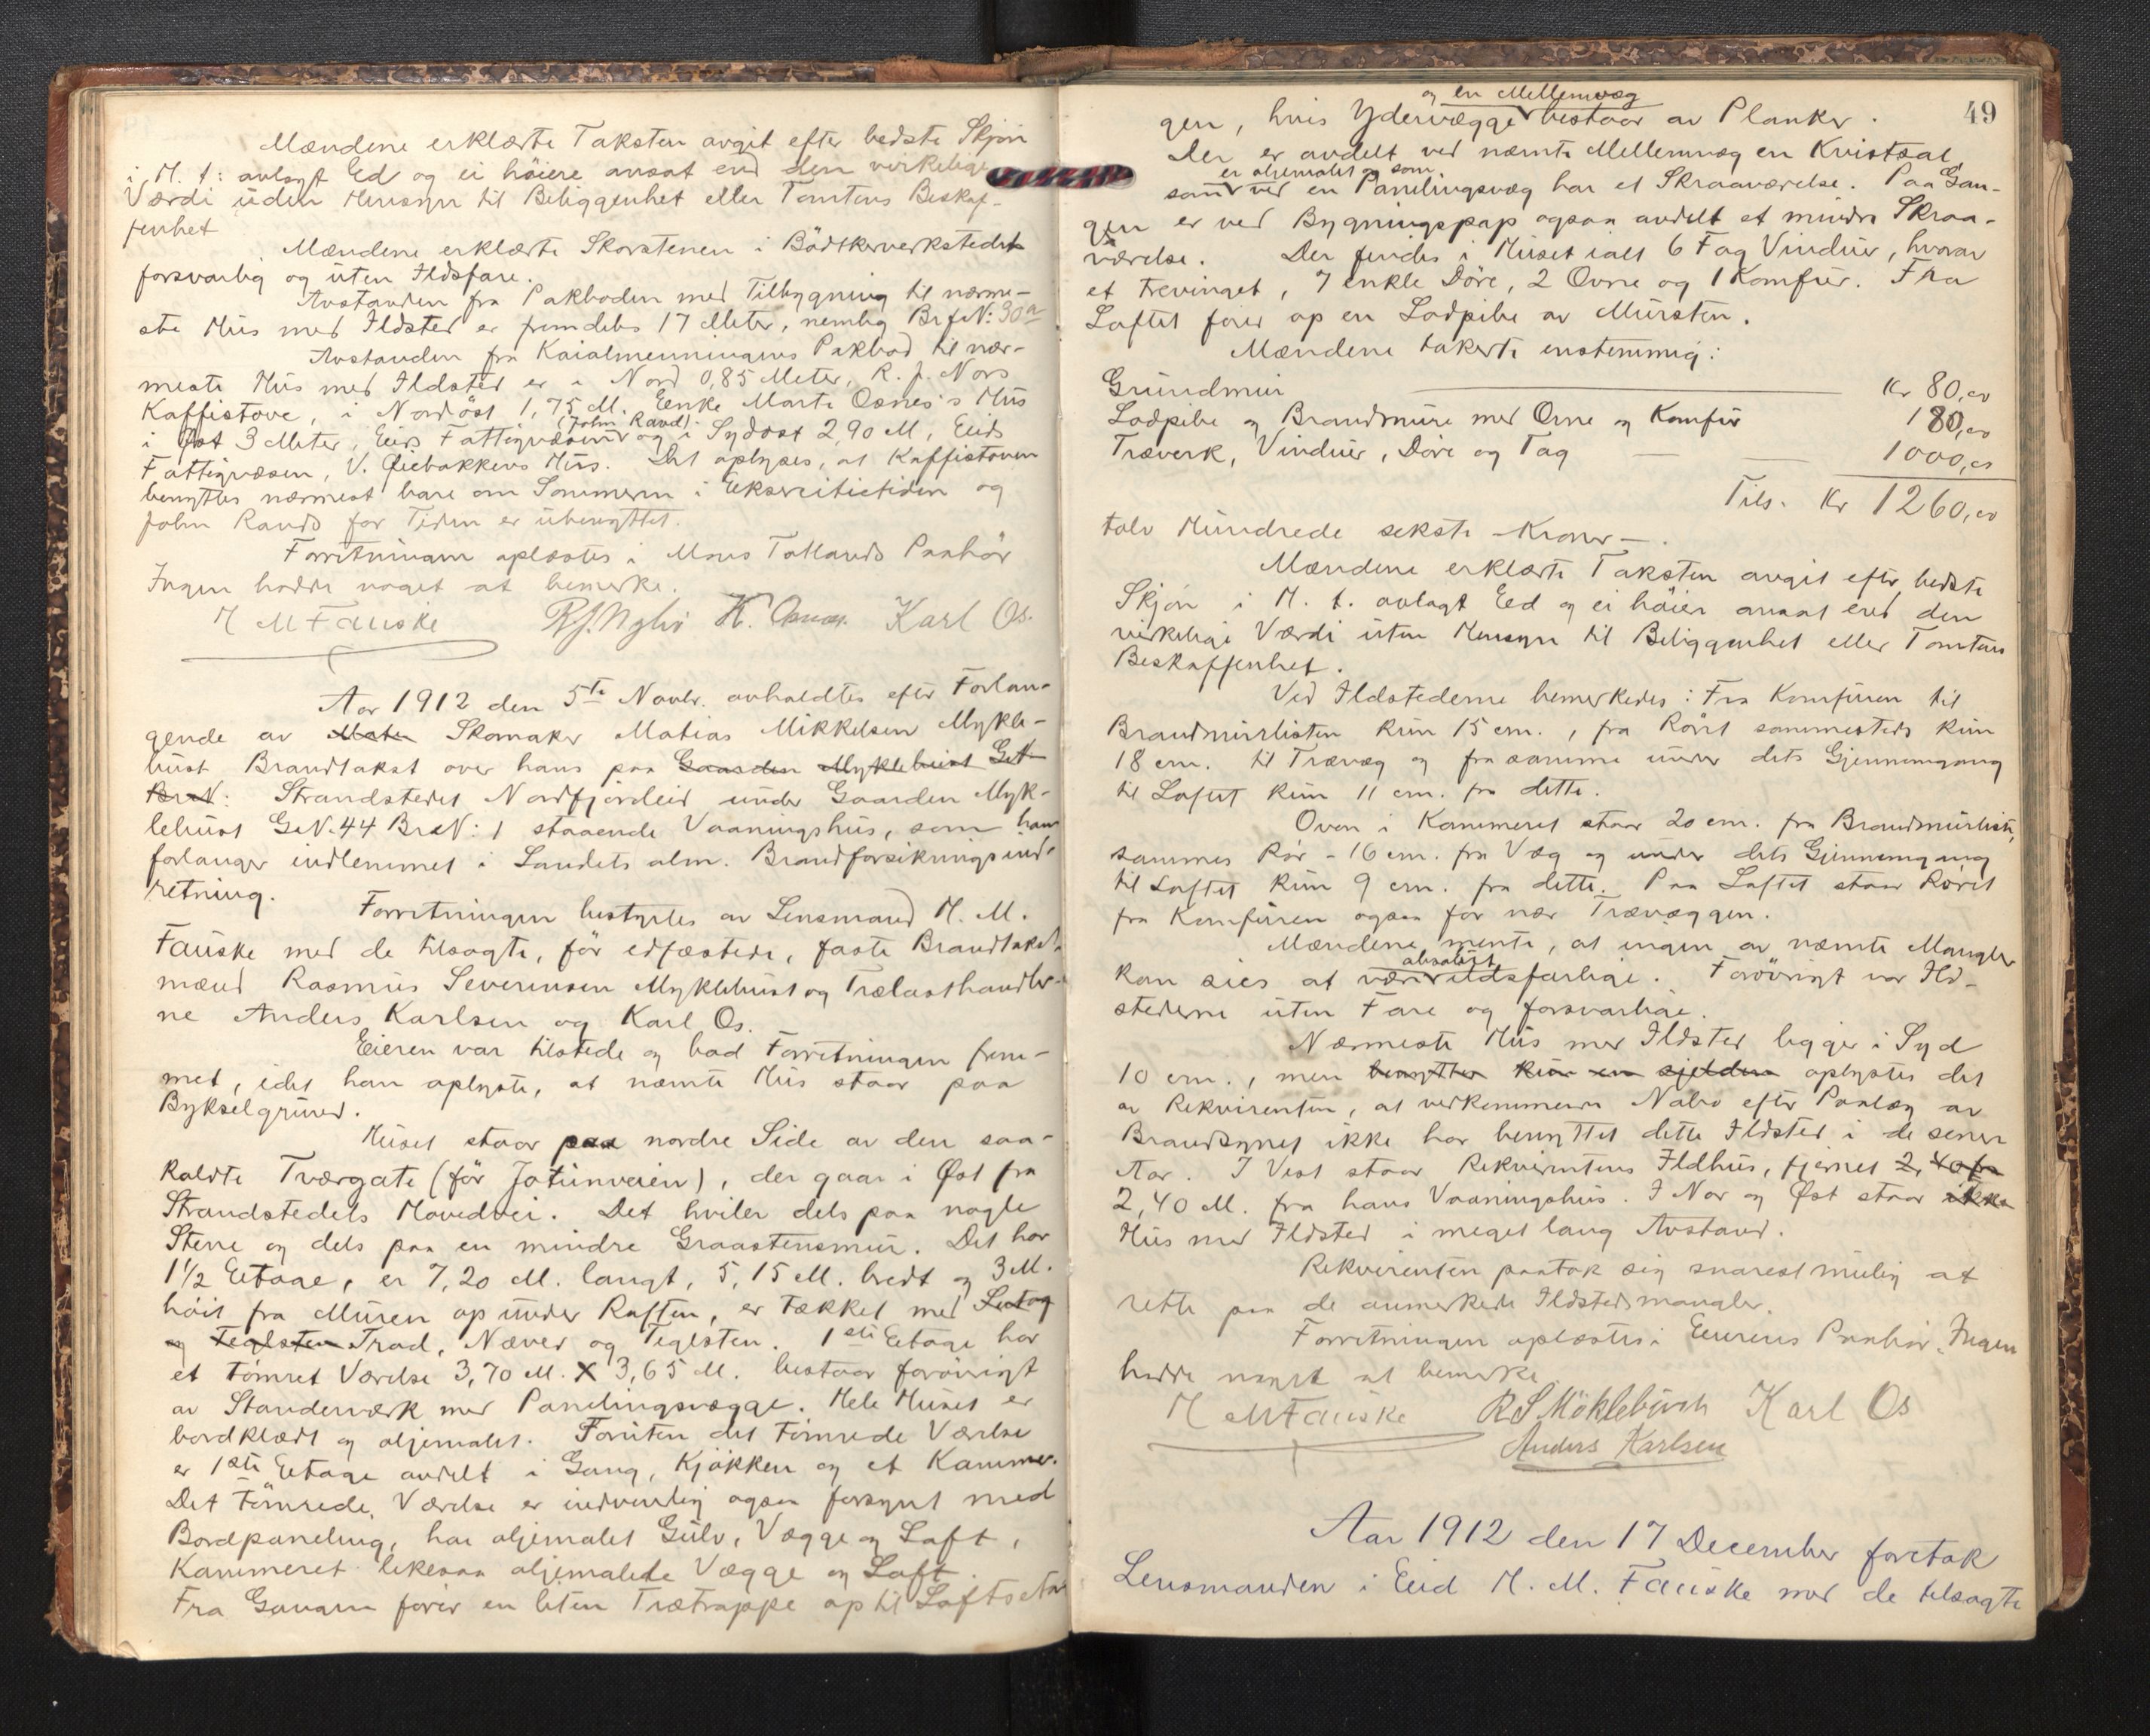 Mændene erklærte Taksten avgit efter bedste Skjøn
i H. t: avlagt Ed og ei høiere ansat end den virkelige
Værdi uden Hensyn til Beliggenhet eller Tomtens Beskaf-
fenhet
Mændene erklærte Skorstenen i Bødtkerverkstedet
forsvarlig og uten Ildsfare.
Avstanden fra Pakboden med Tilbygning til nærme-
ste Hus med Ildsted er fremdeles 17 Meter, nemlig BrfN: 30a
Avstanden fra Kaialmenningens Pakbod til nær-
meste Hus med Ildsted er i Nord 0,85 Meter, R. J. Nors
Kaffistove, i Nordøst 1,75 M. Enke Marte Osnes's Hus
i Øst 3 Meter, Eids Fattigvæsens (John Rand) og i Sydøst 2,90 M, Eids
Fattigvæsen, V. Øiebakkens Hus. Det oplyses, at Kaffistoven
benyttes nærmest bare om Sommeren i Eksercitietiden og
John Rands for Tiden er ubenyttet.
Forretningen oplæstes i Mons Totlands Paahør
Ingen hadde noget at bemerke.
H M Fauske R.J. Nylis K. Osnes. Karl Os.
Aar 1912 den 5te Novbr. avholdtes efter Forlan-
gende av Mater Skomaker Matias Mikkelsen Mykle-
bust Brandtakst over hans paa Gaarden Myklebust G.N.
BrN: Strandstedet Nordfjordeid under Gaarden Myk-
lebust G.N. 44 Br.N: 1 staaende Vaaningshus, som han
forlanger indlemmet i Landets alm. Brandforsikringsind-
retning.
Forretningen bestyrtes av Lensmand H. M.
Fauske med de tilsagte, før edfæstede, faste Brandtakst-
mænd Rasmus Severinsen Myklebust og Trælasthandler-
ne Anders Karlsen og Karl Os.
Eieren var tilstede og bad Forretningen frem-
met, idet han oplyste, at nævnte Hus staar paa
Bykselgrund.
Huset staar paa nordre Side av den saa-
kaldte Tværgate (før Jotunveien), der gaar i Øst fra
Strandstedets Hovedvei. Det hviler dels paa nogle
Stene og dels paa en mindre Graastensmur. Det har
1 1/2 Etage, er 7,20 M. langt, 5,15 M. bredt og 3 M.
høit fra Muren op under Raften, er tækket med Sutag
og Teglsten Trod, Næver og Teglsten. 1ste Etage har
et tømret Værelse 3,70 M. X 3,65 M. bestaar forøvrigt
av Standerværk med Panelingsvægge. Hele Huset er
bordklædt og oljemalet. Foruten det tømrede Værelse
er 1ste Etage avdelt i Gang, Kjøkken og et Kammer.
Det tømrede Værelse er indvendig ogsaa forsynt med
Bordpaneling, har oljemalet Gulv, Vægge og Loft,
Kammeret likesaa oljemalede Vægge og Loft.
Fra Gangen fører en liten Trætrappe op til Loftseta
49
og en Mellemvæg
gen, hvis Ydervægge bestaar av Planker.
Der er avdelt ved nævnte Mellemvæg en Kvistsal,
er oljemalet og som
samt ved en Panelingsvæg har et Skraaværelse. Paa Gan-
gen er ved Bygningspap ogsaa avdelt et mindre Skraa-
værelse. Der findes i Huset ialt 6 Fag Vinduer, hvorav
et trevinget, 7 enkle Døre, 2 Ovne og 1 Komfur. Fra
Loftet fører op en Lodpibe av Mursten.
Mændene takerte enstemmig:
Grundmur Kr 80,00
Lodpibe og Brandmure med Ovne og Komfur 180,00
Træverk, Vinduer, Døre og Tag 1000,00
Tils. Kr 1260,00
tolv Hundrede seksti Kroner.
Mændene erklærte Taksten avgit efter bedste
Skjøn i H. t. avlagt Eed og ei høier ansat end den
virkelige Værdi uten Hensyn til Beliggenhet eller Tomtens
Beskaffenhet.
Ved Ildstederne bemerkedes: Fra Komfuren til
Brandmurlisten kun 15 cm., fra Røret sammesteds kun
18 cm. til Trævæg og fra samme under dets Gjennemgang
til Loftet kun 11 cm. fra dette.
Oven i Kammeret staar 20 cm. fra Brandmurlisten,
sammes Rør - 16 cm. fra Væg og under dets Gjennemgang
til Loftet kun 9 cm. fra dette. Paa Loftet staar Røret
fra Komfuren ogsaa for nær Trævæggen.
Mændene mente, at ingen av nævnte Mangler
absolut
kan sies at være ildsfarlige. Forøvrigt var Ild-
stederne uten Fare og forsvarlige.
Nærmeste Hus med Ildsted ligger i Syd
10 cm., men benyttes kun en sjelden oplystes det
av Rekvirenten, at vedkommende Nabo efter Paalæg av
Brandsynet ikke har benyttet dette Ildsted i de senere
Aar. I Vest staar Rekvirentens Ildhus, fjernet 2,40 fra
2,40 M. fra hans Vaaningshus. I Nor og Øst staar ikke
Hus med Ildsted i meget lang Avstand.
Rekvirenten paatok sig snarest mulig at
rette paa de anmerkede Ildstedsmangler.
Forretningen oplæstes i Eierens Paahør. Ingen
hadde noget at bemerke.
H M Fauske R S Möklebust Karl Os
Anders Karlsen
Aar 1912 den 17 December foretok
Lensmanden i Eid H. M. Fauske med de tilsagte